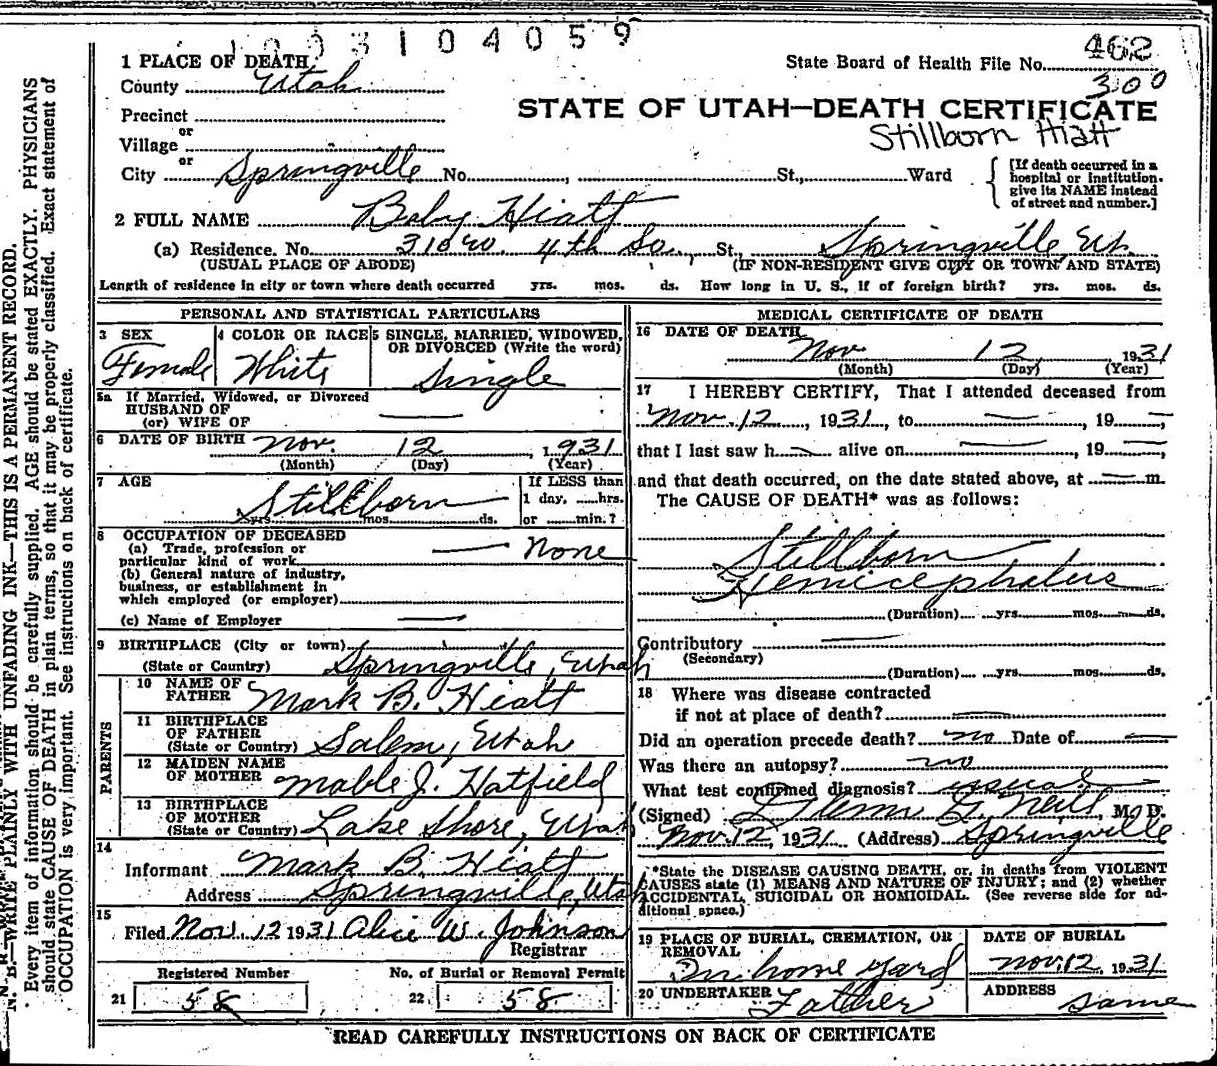 1003104059
462
1 PLACE OF DEATH State Board of Health File No.
County Utah 300
STATE OF UTAH—DEATH CERTIFICATE
Precinct
or
Stillborn Hiatt
Village
or
City Springville No. , St., Ward
[If death occurred in a hospital or institution. give its NAME instead of street and number.]
2 FULL NAME Baby Hiatt
(a) Residence. No. 310 W. 4th So., St., Springville Ut.
(USUAL PLACE OF ABODE) (IF NON-RESIDENT GIVE CITY OR TOWN AND STATE)
Length of residence in city or town where death occurred yrs. mos. ds. How long in U. S., if of foreign birth? yrs. mos. ds.
PERSONAL AND STATISTICAL PARTICULARS
3 SEX
Female
4 COLOR OR RACE
White
5 SINGLE, MARRIED, WIDOWED, OR DIVORCED (Write the word)
Single
5a If Married, Widowed, or Divorced
HUSBAND OF
(or) WIFE OF
6 DATE OF BIRTH Nov. 12, 1931
(Month) (Day) (Year)
7 AGE
Stillborn
yrs. mos. ds.
If LESS than
1 day, hrs.
or min.?
8 OCCUPATION OF DECEASED
(a) Trade, profession or
particular kind of work None
(b) General nature of industry,
business, or establishment in
which employed (or employer)
(c) Name of Employer
9 BIRTHPLACE (City or town)
(State or Country) Springville, Utah
PARENTS
10 NAME OF FATHER Mark B. Hiatt
11 BIRTHPLACE OF FATHER
(State or Country) Salem, Utah
12 MAIDEN NAME OF MOTHER Mable J. Hatfield
13 BIRTHPLACE OF MOTHER
(State or Country) Lake Shore, Utah
14
Informant Mark B. Hiatt
Address Springville, Utah
15
Filed Nov. 12 1931 Alice W. Johnson
Registrar
Registered Number No. of Burial or Removal Permit
21 58 22 58
MEDICAL CERTIFICATE OF DEATH
16 DATE OF DEATH
Nov 12, 1931
(Month) (Day) (Year)
17 I HEREBY CERTIFY, That I attended deceased from
Nov. 12, 1931, to , 19
that I last saw h alive on , 19
and that death occurred, on the date stated above, at m.
The CAUSE OF DEATH* was as follows:
Stillborn
Hemicephalus
(Duration) yrs. mos. ds.
Contributory
(Secondary)
(Duration) yrs. mos. ds.
18 Where was disease contracted
if not at place of death?
Did an operation precede death? no Date of
Was there an autopsy? no
What test confirmed diagnosis? visual
(Signed) G. Neill, M. D.
Nov. 12, 1931 (Address) Springville
*State the DISEASE CAUSING DEATH, or, in deaths from VIOLENT
CAUSES state (1) MEANS AND NATURE OF INJURY; and (2) whether
ACCIDENTAL, SUICIDAL OR HOMICIDAL. (See reverse side for ad-
ditional space.)
19 PLACE OF BURIAL, CREMATION, OR REMOVAL
In home yard
DATE OF BURIAL
Nov. 12, 1931
20 UNDERTAKER Father
ADDRESS
same
READ CAREFULLY INSTRUCTIONS ON BACK OF CERTIFICATE
N. B.—WRITE PLAINLY WITH UNFADING INK—THIS IS A PERMANENT RECORD.
Every item of information should be carefully supplied. AGE should be stated EXACTLY. PHYSICIANS
should state CAUSE OF DEATH in plain terms, so that it may be properly classified. Exact statement of
OCCUPATION is very important. See instructions on back of certificate.